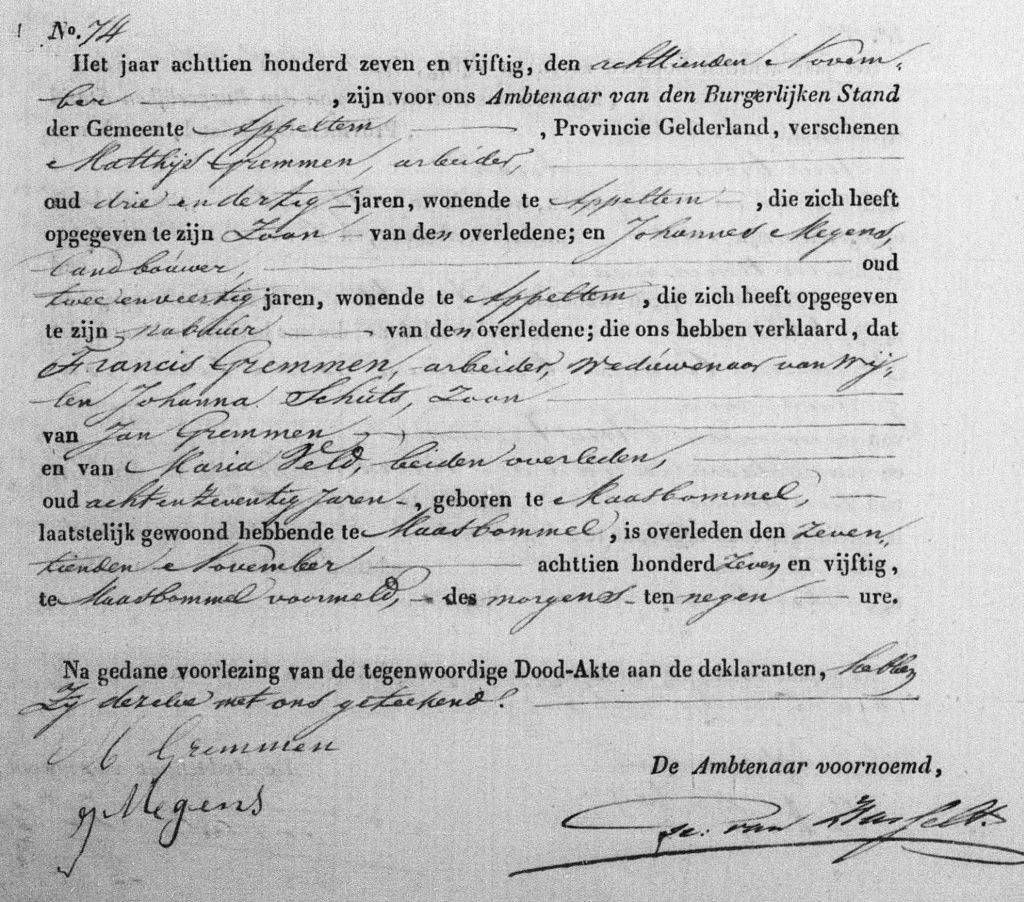 No. 74
Het jaar achttien honderd zeven en vijftig, den achttienden Novem-
ber, zijn voor ons Ambtenaar van den Burgerlijken Stand
der Gemeente Appeltern, Provincie Gelderland, verschenen
Matthijs Gremmen, arbeider,
oud drie en dertig jaren, wonende te Appeltern, die zich heeft
opgegeven te zijn Zoon van den overledene; en Johannes Megens,
landbouwer, oud
twee en veertig jaren, wonende te Appeltern, die zich heeft opgegeven
te zijn nabuur van den overledene; die ons hebben verklaard, dat
Francis Gremmen, arbeider, Weduwenaar van Wij-
len Johanna Schuts, Zoon
van Jan Gremmen
en van Maria Veld, beiden overleden,
oud acht en zeventig Jaren, geboren te Maasbommel,
laatstelijk gewoond hebbende te Maasbommel, is overleden den zeven-
tienden November achttien honderd zeven en vijftig,
te Maasbommel voormeld, des morgens ten negen ure.
Na gedane voorlezing van de tegenwoordige Dood-Akte aan de deklaranten, hebben
Zij dezelve met ons geteekend.
M Gremmen
J Megens
De Ambtenaar voornoemd,
van Hasselt